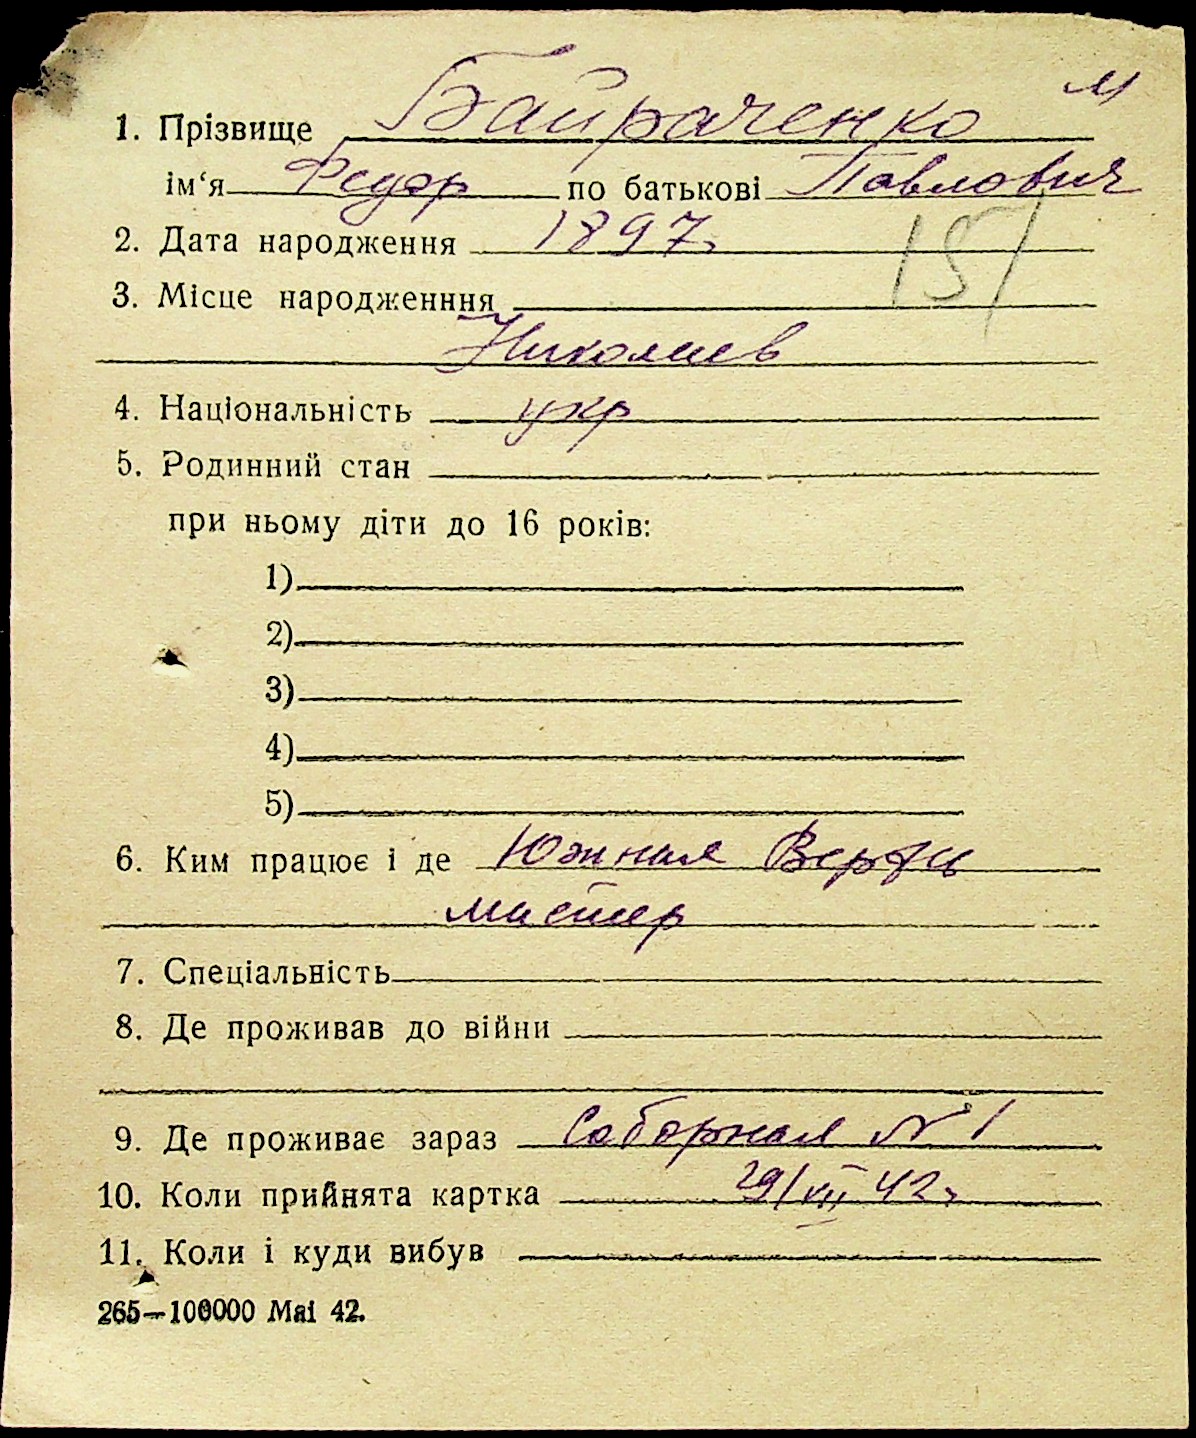 м
1. Прізвище Байраченко
ім‘я Федор по батькові Павлович
2. Дата народження 1897г
151
3. Місце народженння
Николаев
4. Національність укр
5. Родинний стан
при ньому діти до 16 років:
1)
2)
3)
4)
5)
6. Ким працює і де Южная Верфь
мастер
7. Спеціальність
8. Де проживав до війни
9. Де проживає зараз Соборная № 1
10. Коли прийнята картка 29/VII 42г
11. Коли і куди вибув
265—100000 Mai 42.